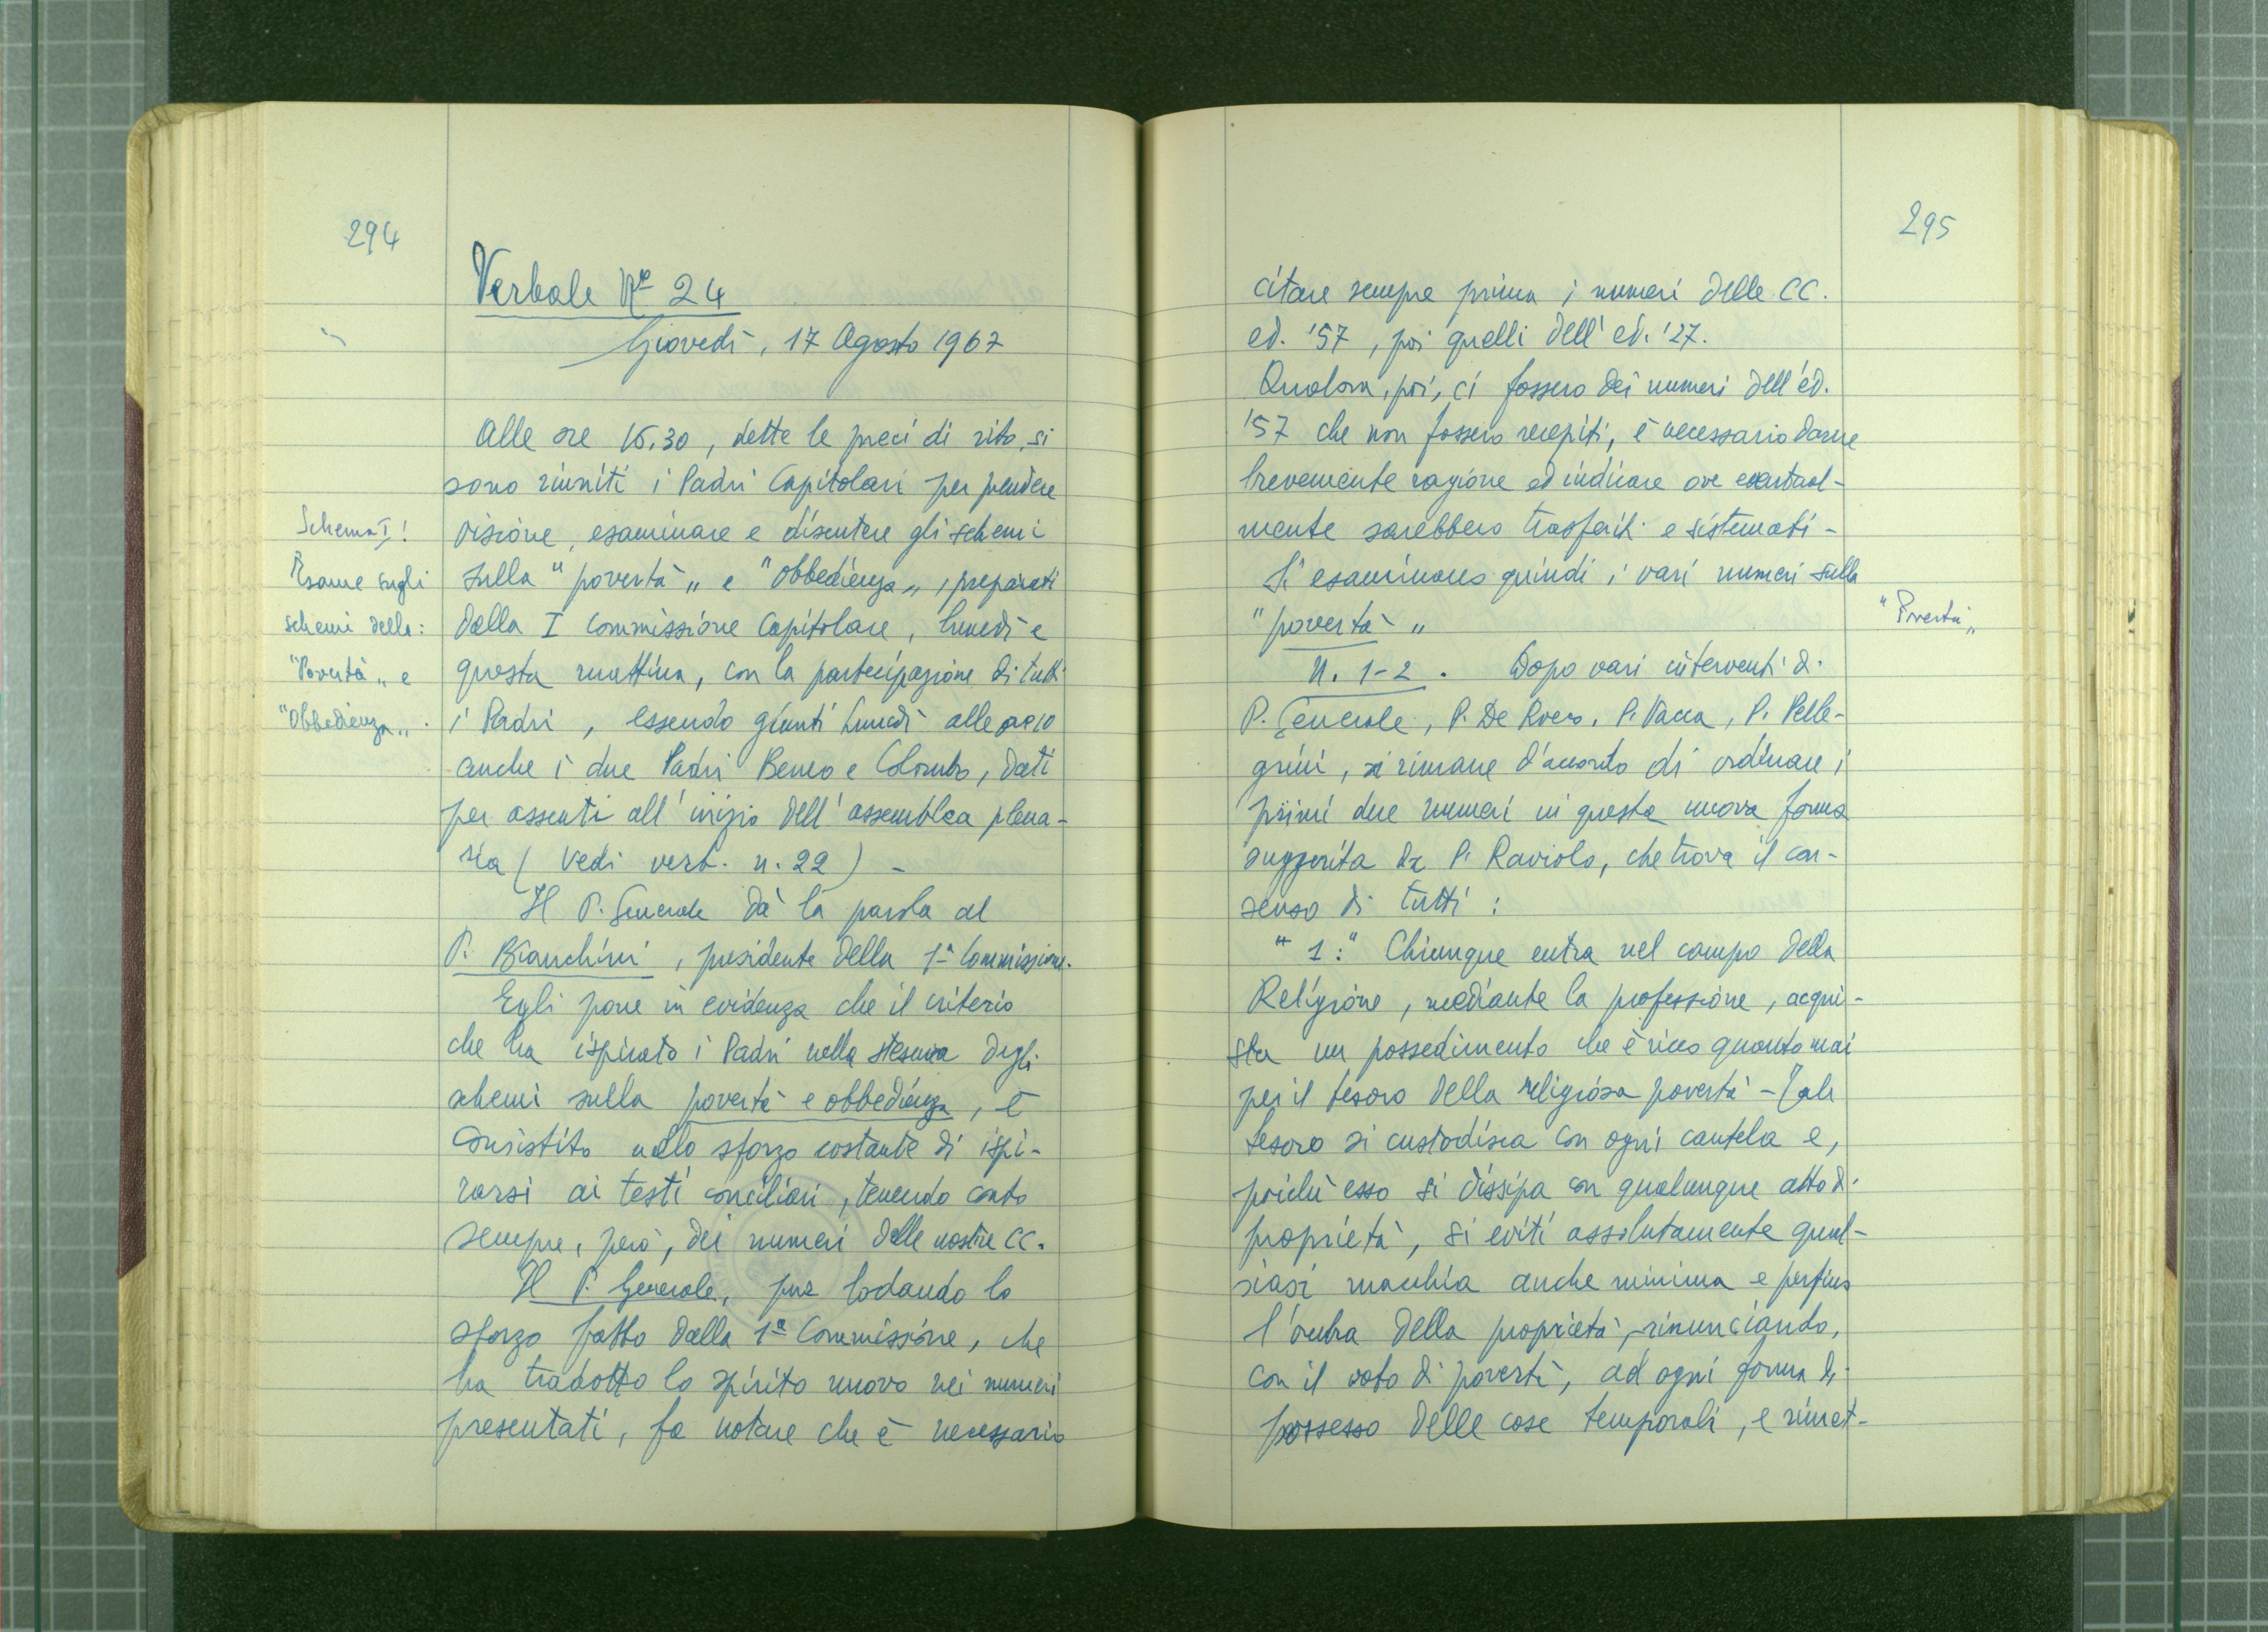 294
Verbale Nº 24
Giovedì, 17 Agosto 1967
Alle ore 15.30, dette le preci di rito, si
sono riuniti i Padri Capitolari per prendere
visione, esaminare e discutere gli schemi
sulla "povertà„ e "Obbedienza„, preparati
dalla I Commissione Capitolare, lunedì e
questa mattina, con la partecipazione di tutti
i Padri, essendo giunti lunedì alle ore 10
anche i due Padri Beneo e Colombo, dati
per assenti all'inizio dell'assemblea plena-
ria (vedi verb. n. 22) -
Il P. Generale dà la parola al
P. Bianchini, presidente della 1ª Commissione.
Egli pone in evidenza che il criterio
che ha ispirato i Padri nella stesura degli
schemi sulla povertà e obbedienza, è
consistito nello sforzo costante di ispi-
rarsi ai testi conciliari, tenendo conto
sempre, però, dei numeri delle nostre CC.
Il P. Generale, pur lodando lo
sforzo fatto dalla 1ª Commissione, che
ha tradotto lo spirito nuovo nei numeri
presentati, fa notare che è necessario
Schema I!
Esame sugli
schemi della:
"Povertà„ e
"Obbedienza„.
295
citare sempre prima i numeri delle CC.
ed. '57, poi quelli dell'ed. '27.
Qualora, poi, ci fossero dei numeri dell'ed.
'57 che non fossero recepiti, è necessario darne
brevemente ragione ed indicare ove eventual-
mente sarebbero trasferiti e sistemati -
Si esaminano quindi i vari numeri sulla
"povertà„
N. 1-2. Dopo vari interventi di
P. Generale, P. De Rocco, P. Vacca, P. Pelle-
grini, si rimane d'accordo di ordinare i
primi due numeri in questa nuova forma
suggerita da P. Raviolo, che trova il con-
senso di tutti:
"1:" Chiunque entra nel campo della
Religione, mediante la professione, acqui-
sta un possedimento che è ricco quanto mai
per il tesoro della religiosa povertà - Tale
tesoro si custodisca con ogni cautela e,
poichè esso si dissipa con qualunque atto di
proprietà, si eviti assolutamente qual-
siasi macchia anche minima e perfino
l'ombra della proprietà, rinunciando,
con il voto di povertà, ad ogni forma di
possesso delle cose temporali, e rimet-
"Povertà„